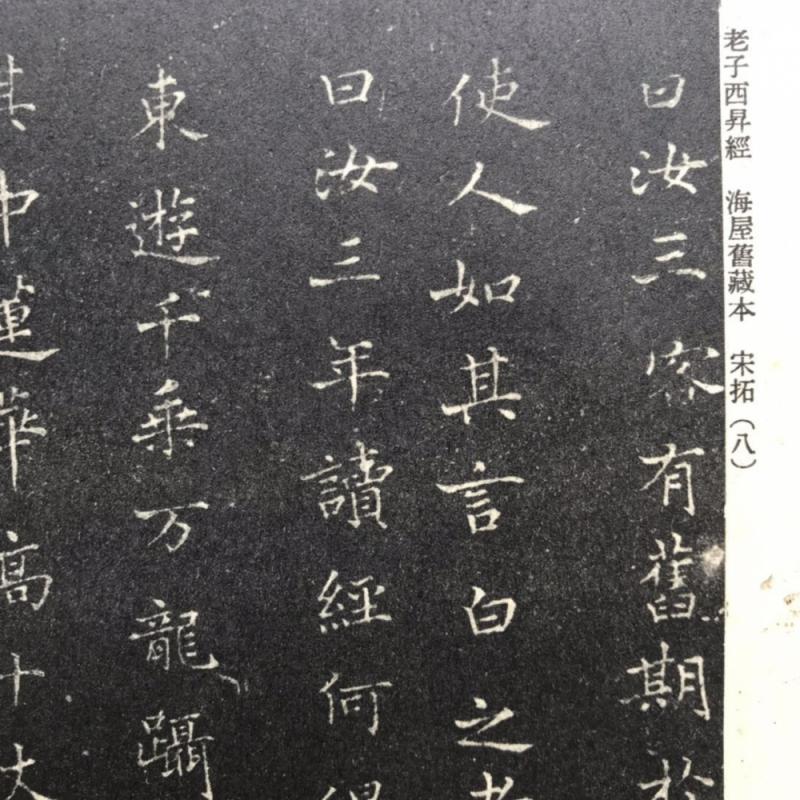 老子西昇經 海屋舊藏本 宋拓（八）
曰汝三客有舊期於
使人如其言白之老
曰汝三年讀經何得
東遊千乘万龍躡
其中蓮華高十丈